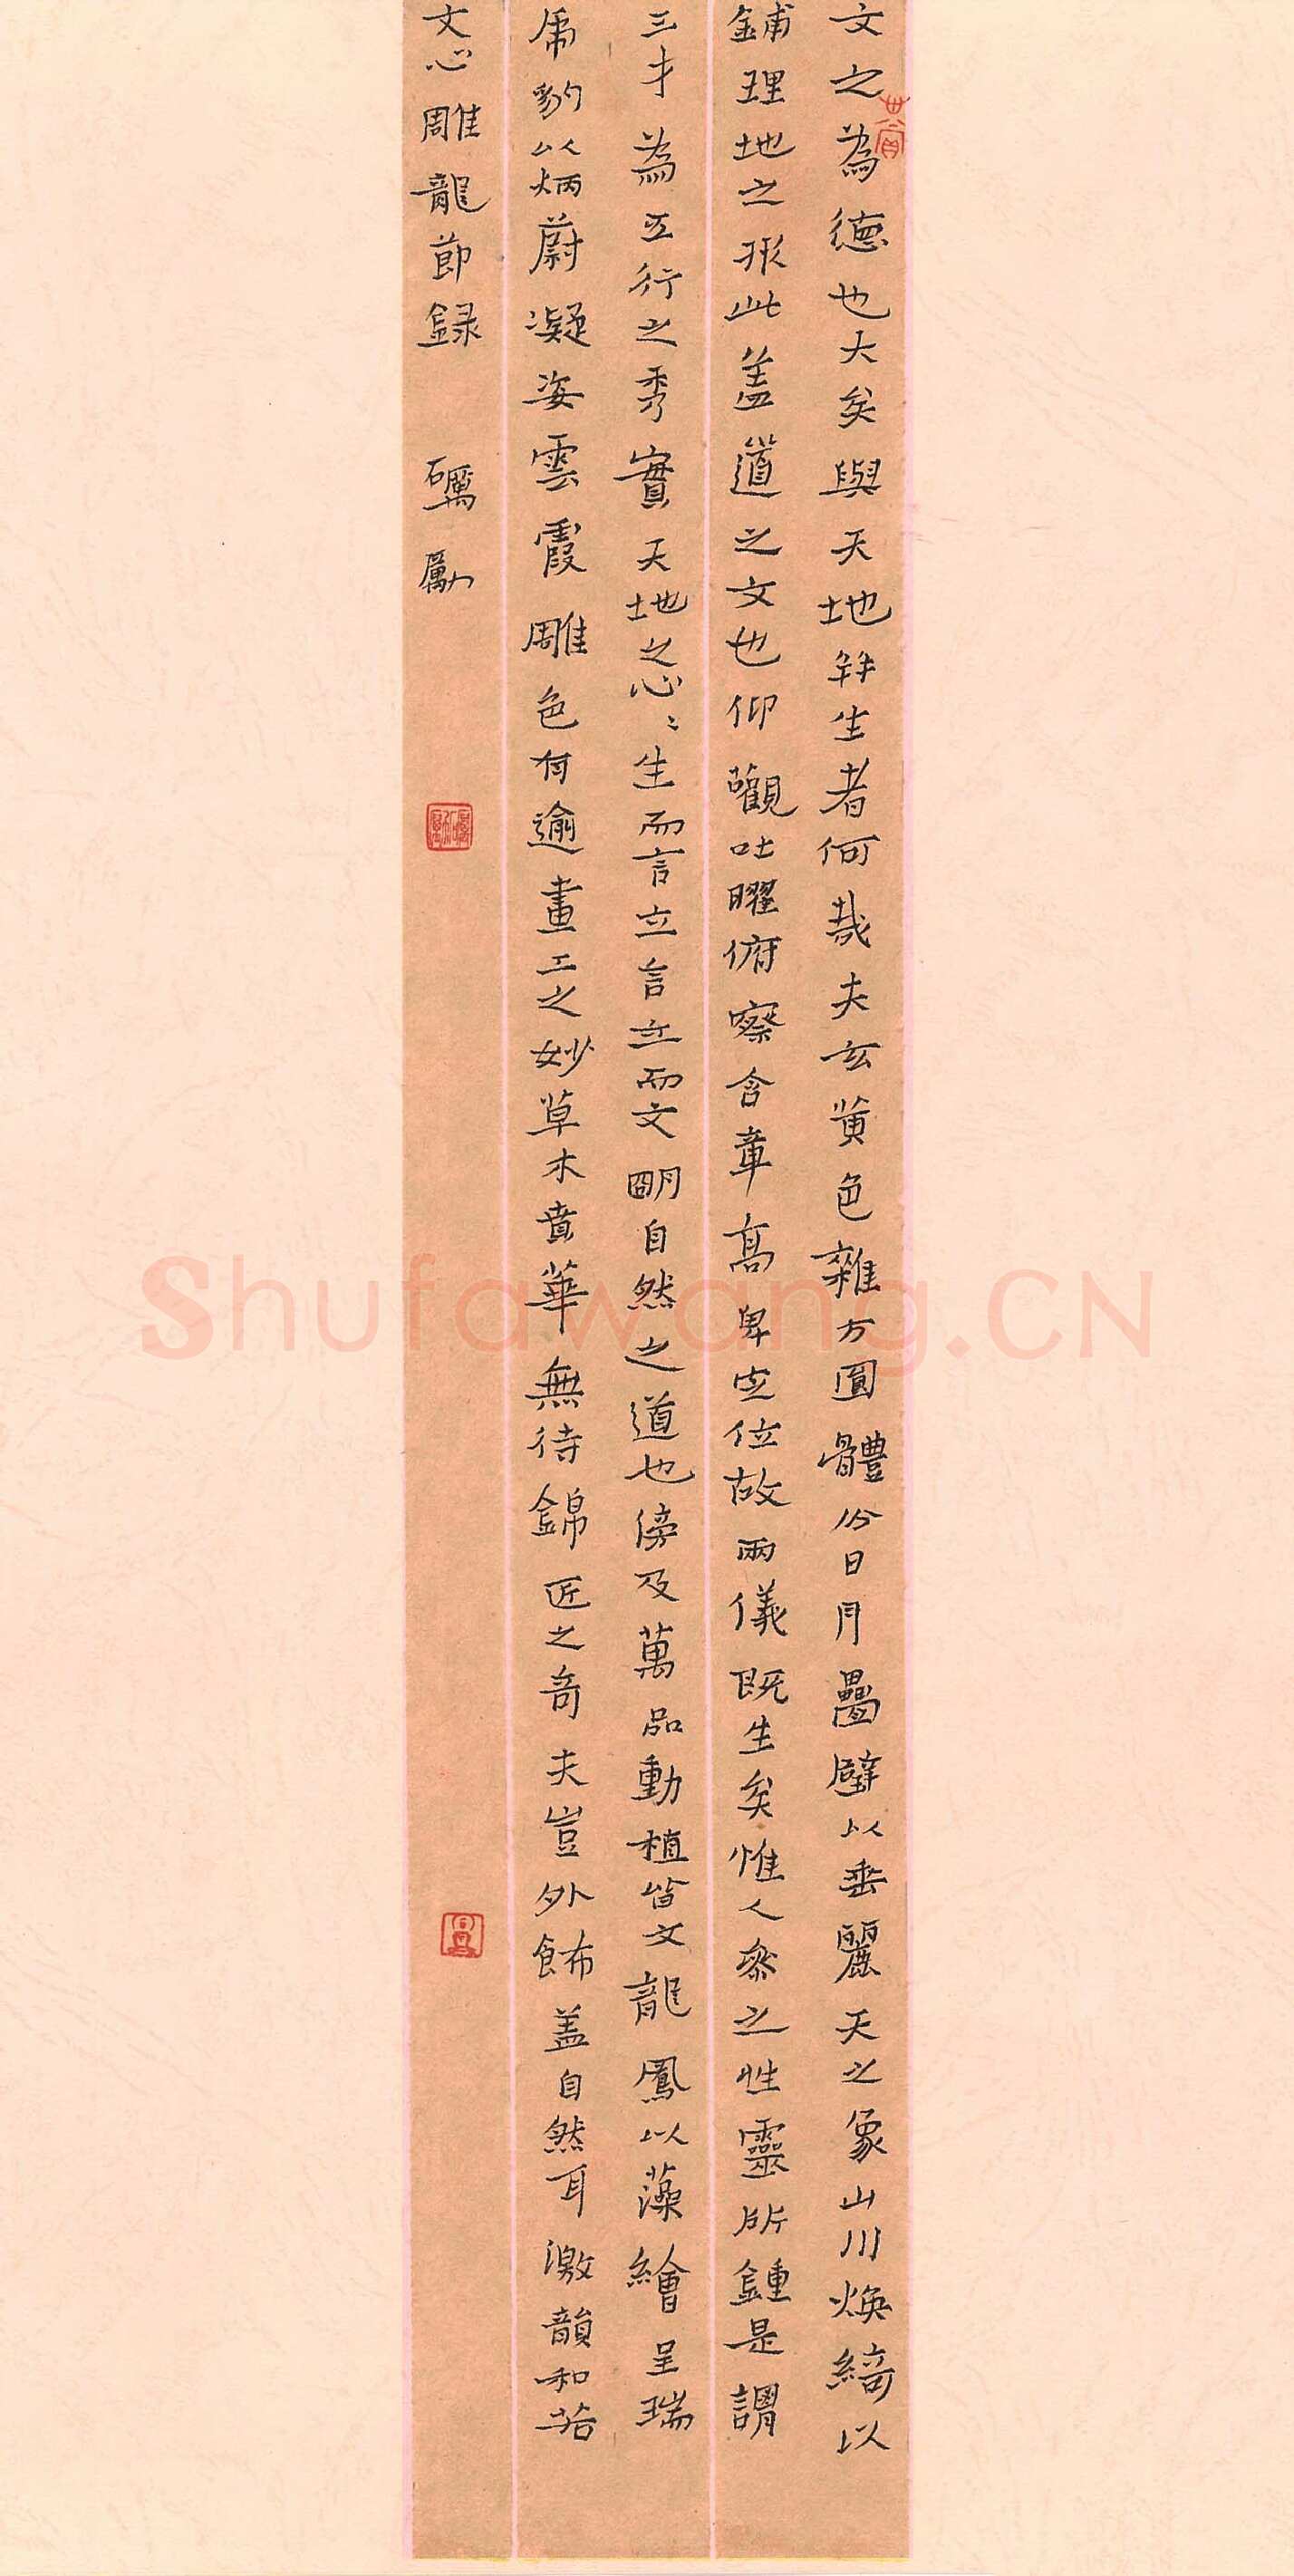 文之為德也大矣與天地并生者何哉夫玄黄色雜方圓體分日月疊璧以垂麗天之象山川焕綺以
鋪理地之形此盖道之文也仰觀吐曜俯察含章高卑定位故兩儀既生矣惟人叅之性靈所鍾是謂
三才為五行之秀實天地之心〻生而言立言立而文明自然之道也傍及萬品動植皆文龍鳳以藻繪呈瑞
虎豹以炳蔚凝姿雲霞雕色有逾畫工之妙草木賁華無待錦匠之奇夫豈外飾盖自然耳激韻和若
文心雕龍節録 礪勵
Shufawang.CN